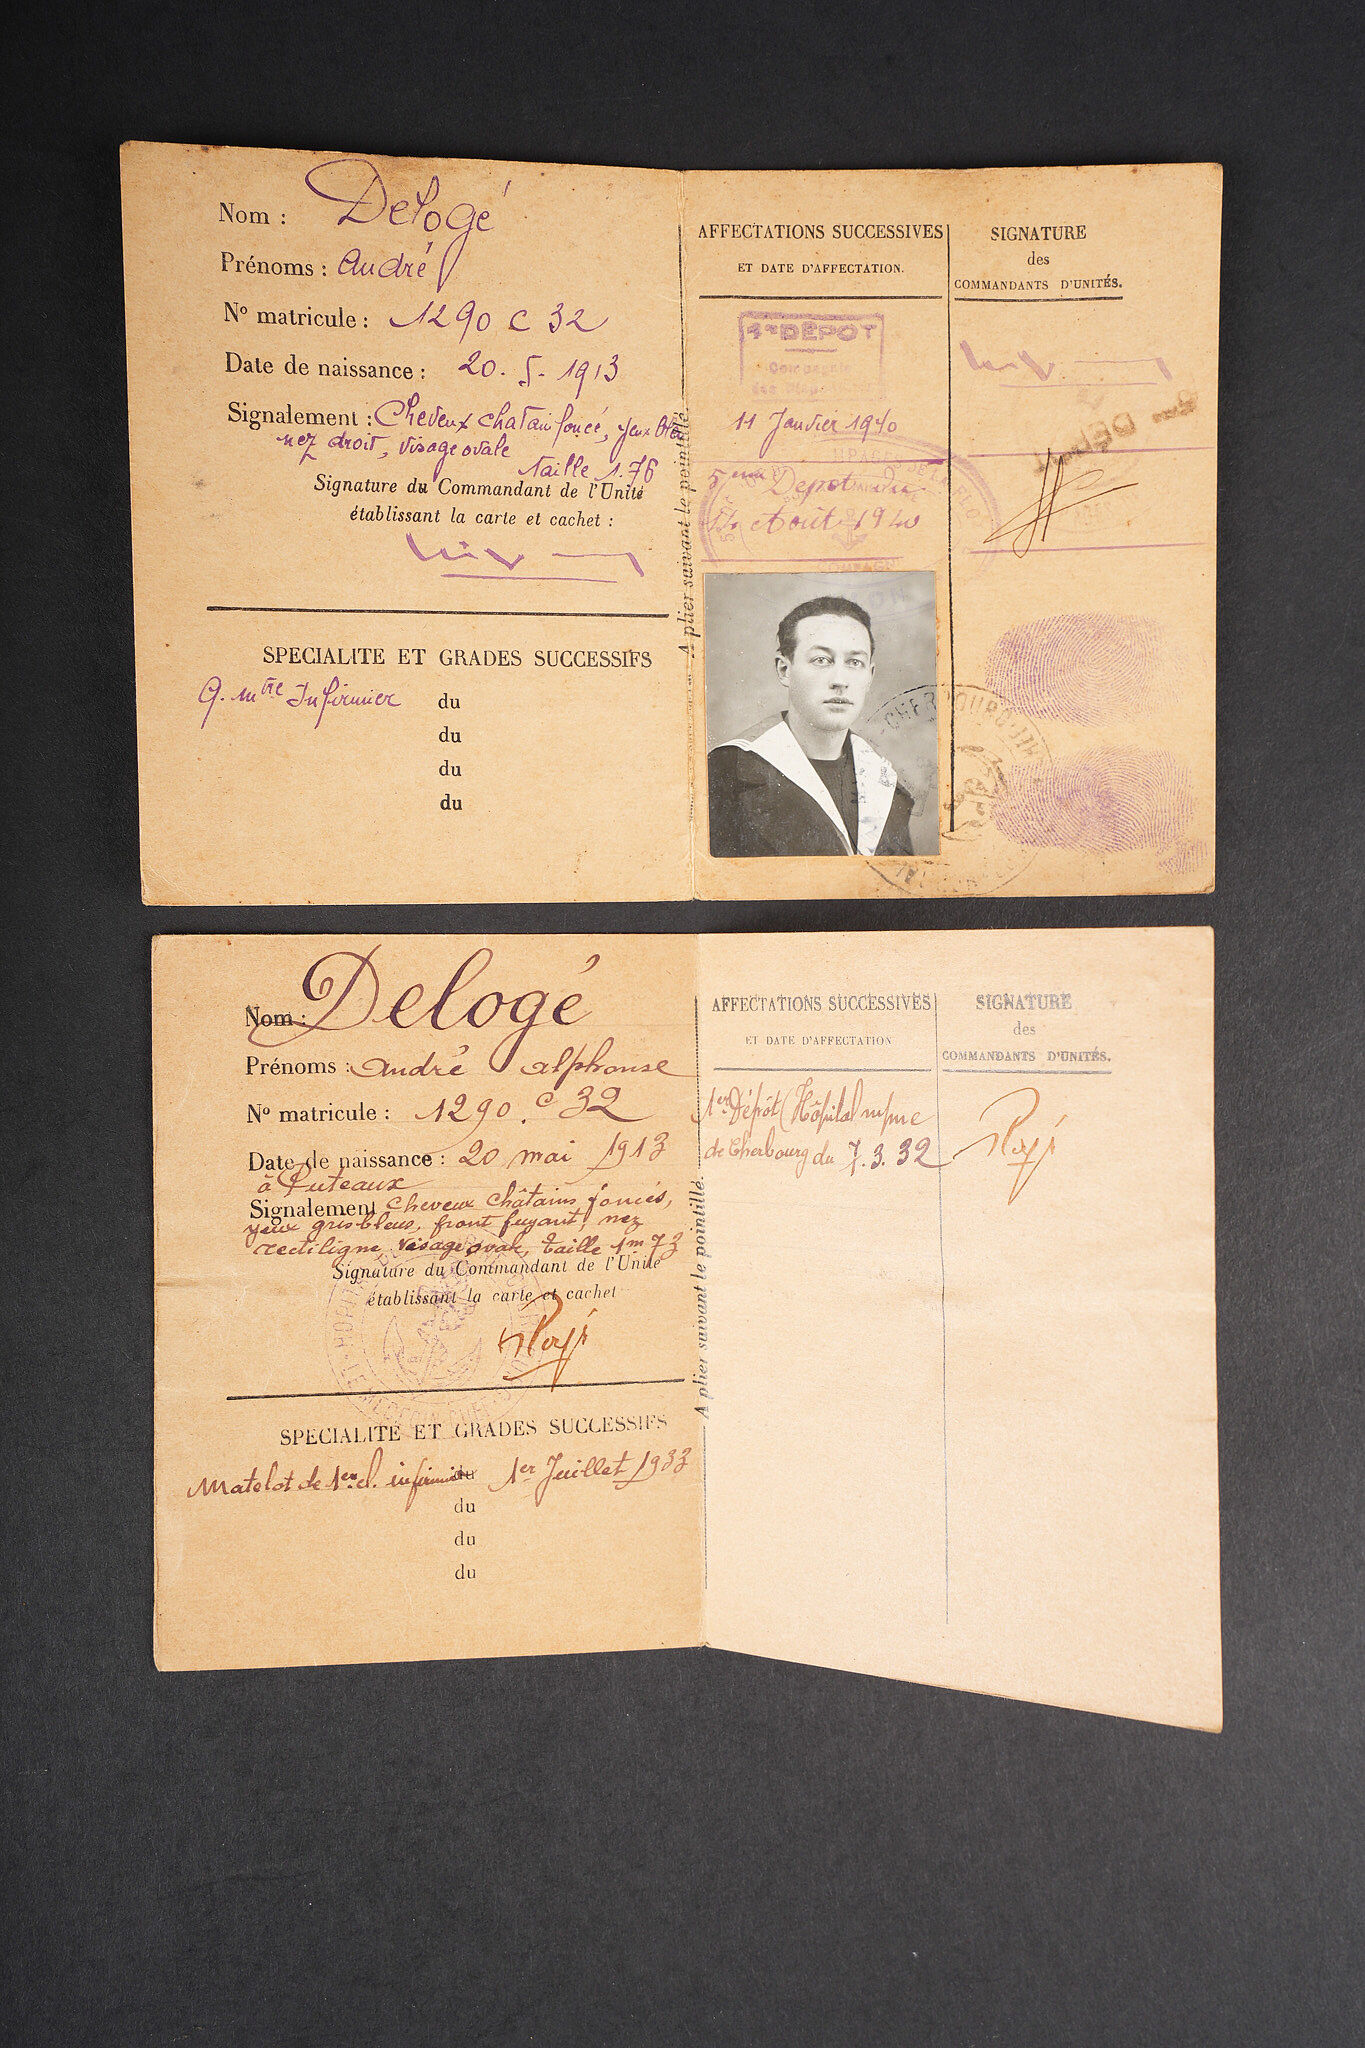 Nom : Delogé
Prénoms : André
Nº matricule : 1290 C 32
Date de naissance : 20. 5. 1913
Signalement : Cheveux chatain foncé, yeux
nez droit, visage ovale
taille 1.76
Signature du Commandant de l'Unité
établissant la carte et cachet :
SPECIALITE ET GRADES SUCCESSIFS
Q. mtre Infirmier du
du
du
du
A plier suivant le pointillé.
AFFECTATIONS SUCCESSIVES
ET DATE D'AFFECTATION.
SIGNATURE
des
COMMANDANTS D'UNITÉS.
1er DEPOT
Compagnie
11 Janvier 1940
5ème Depot du
Août 1940
CHERBOURG
Nom : Delogé
Prénoms : André Alphonse
Nº matricule : 1290. C 32
Date de naissance : 20 mai 1913
à Puteaux
Signalement Cheveux châtains foncés,
yeux gris bleus, front fuyant, nez
rectiligne, visage ovale, taille 1m73
Signature du Commandant de l'Unité
établissant la carte et cachet
SPECIALITE ET GRADES SUCCESSIFS
Matelot de 1er cl. infirmier du 1er Juillet 1933
du
du
du
A plier suivant le pointillé.
AFFECTATIONS SUCCESSIVES
ET DATE D'AFFECTATION
SIGNATURE
des
COMMANDANTS D'UNITÉS.
1er Dépôt (Hôpital mpme
de Cherbourg du 7. 3. 32